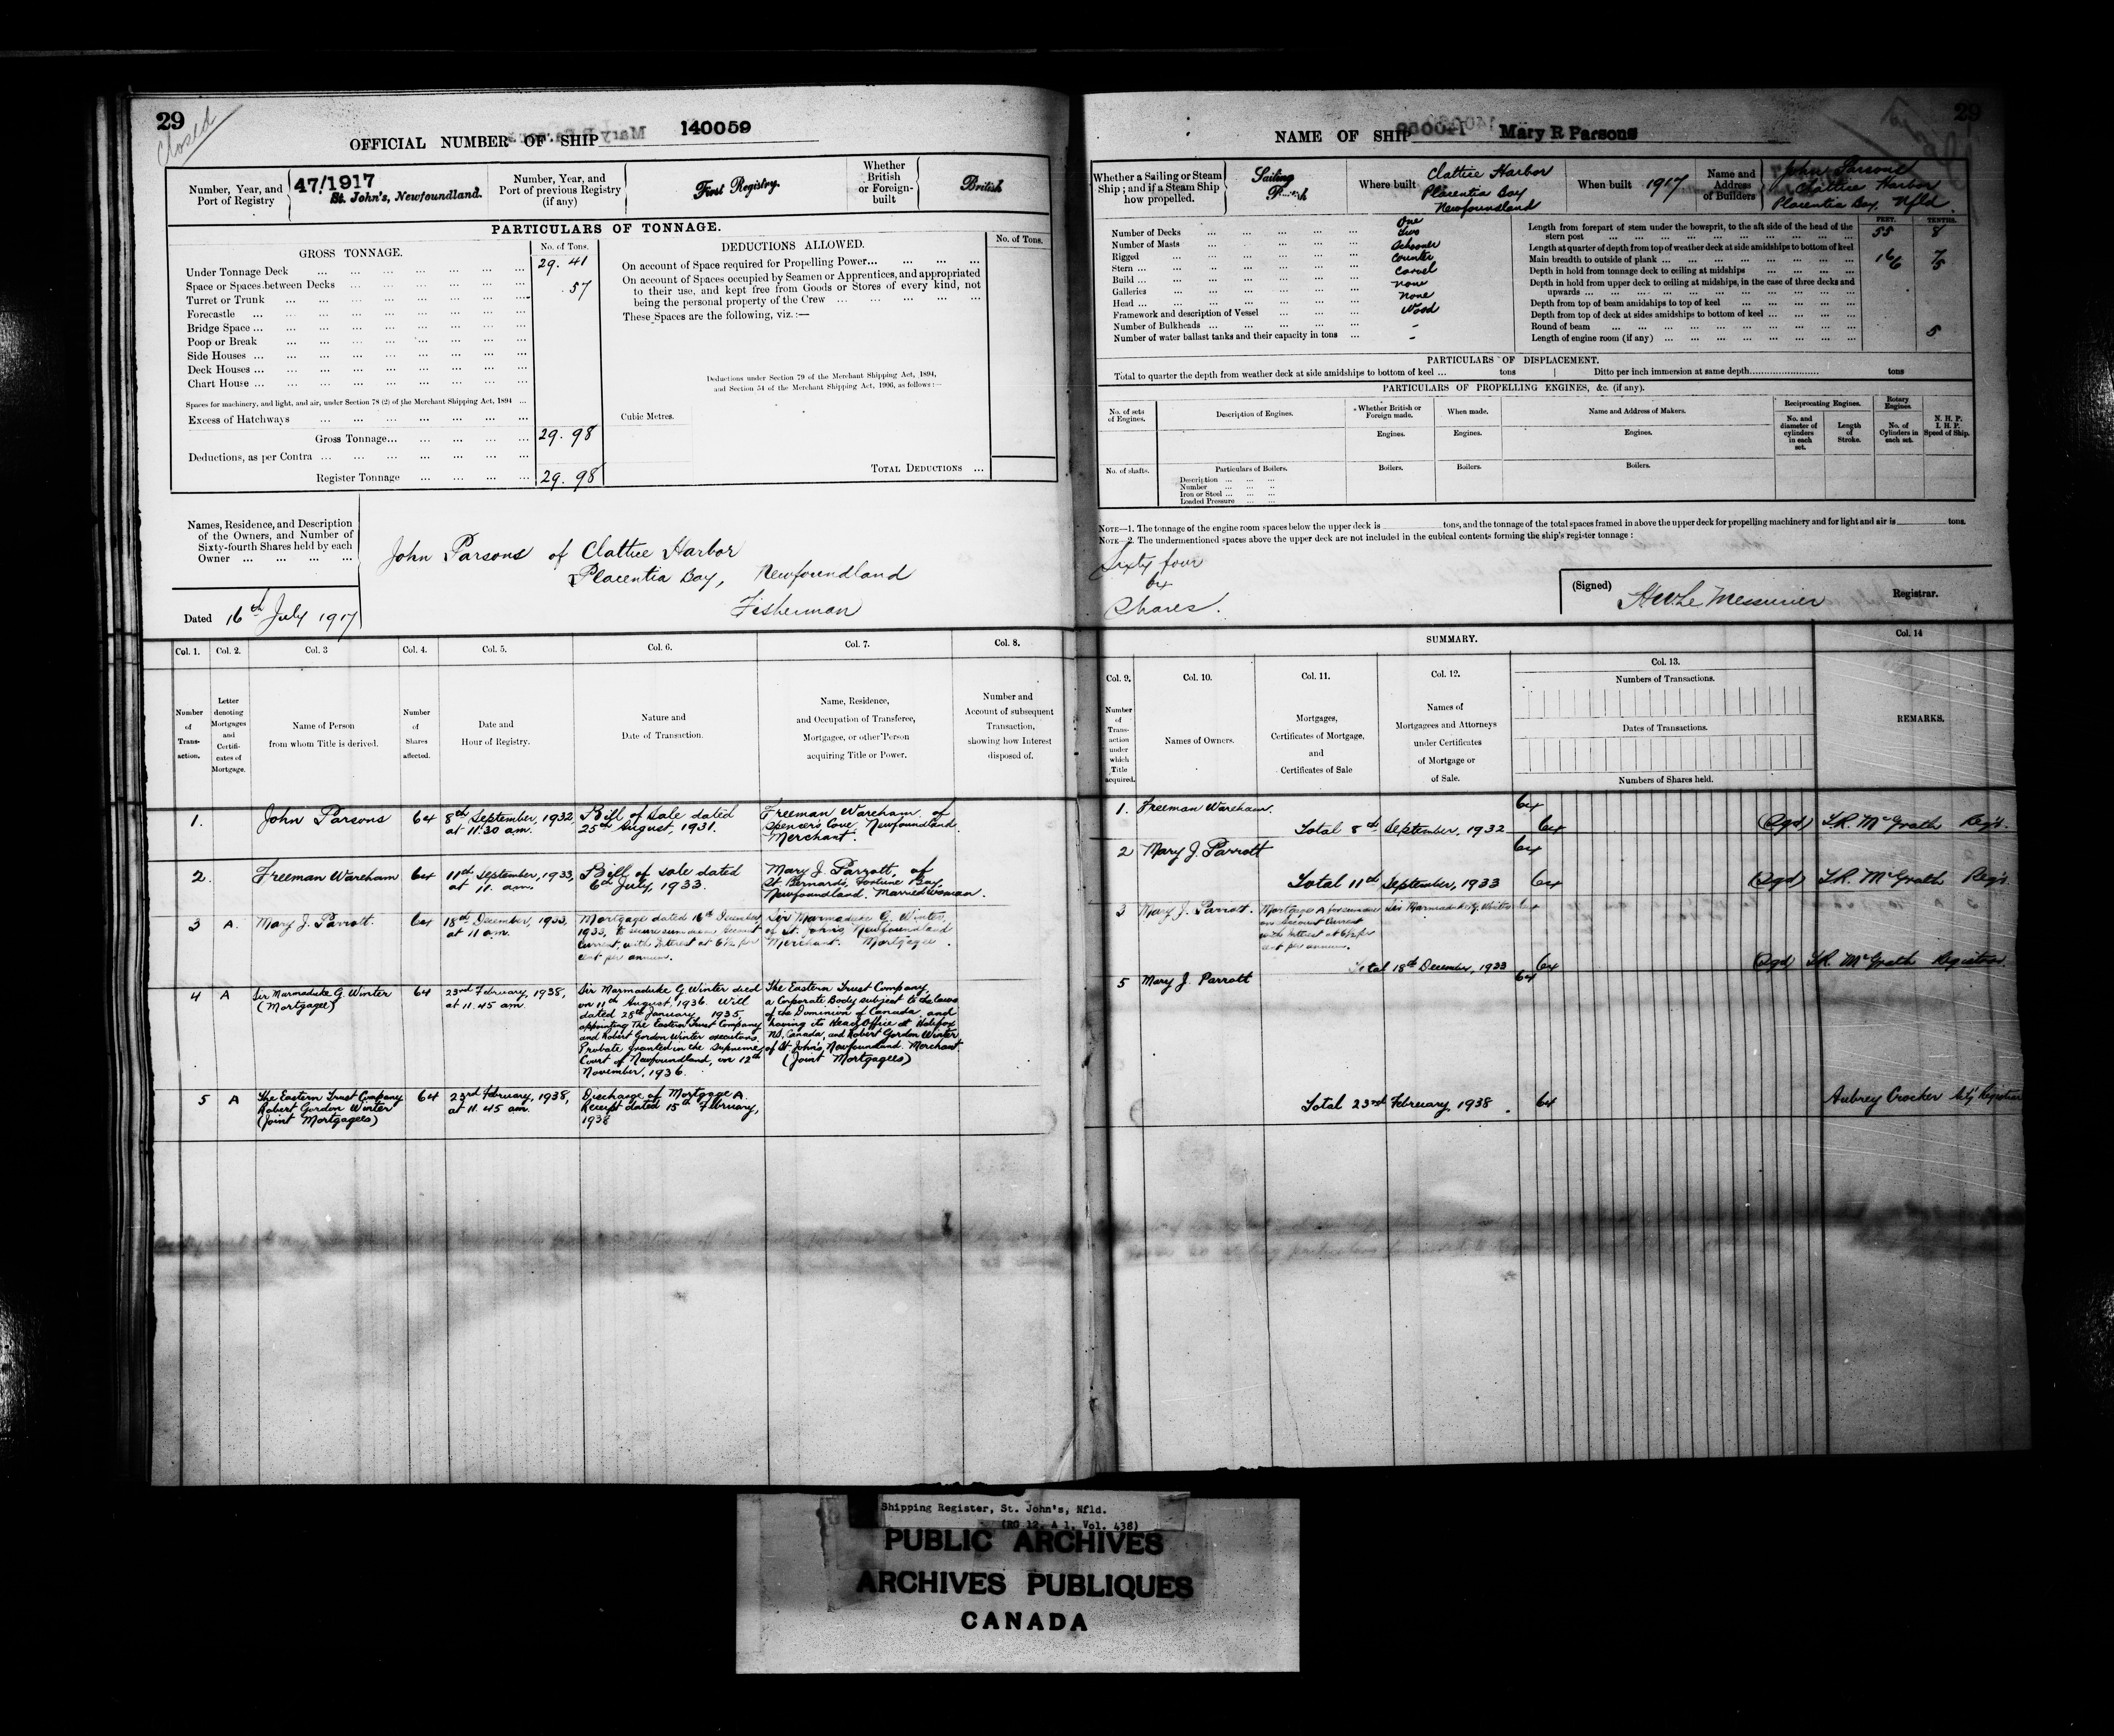 29
Closed
OFFICIAL NUMBER OF SHIP 140059
Number, Year, and
Port of Registry
47/1917
St. John's, Newfoundland.
Number, Year, and
Port of previous Registry
(if any)
First Registry.
Whether
British
or Foreign-
built
British
PARTICULARS OF TONNAGE.
GROSS TONNAGE.
No. of Tons.
Under Tonnage Deck ... 29. 41
Space or Spaces between Decks ... .57
Turret or Trunk
Forecastle
Bridge Space
Poop or Break
Side Houses
Deck Houses
Chart House
Spaces for machinery, and light, and air, under Section 78 (2) of the Merchant Shipping Act, 1894
Excess of Hatchways
Gross Tonnage... 29. 98
Deductions, as per Contra
Register Tonnage 29. 98
DEDUCTIONS ALLOWED.
No. of Tons.
On account of Space required for Propelling Power...
On account of Spaces occupied by Seamen or Apprentices, and appropriated
to their use, and kept free from Goods or Stores of every kind, not
being the personal property of the Crew
These Spaces are the following, viz.:—
Deductions under Section 79 of the Merchant Shipping Act, 1894,
and Section 54 of the Merchant Shipping Act, 1906, as follows:—
Cubic Metres.
TOTAL DEDUCTIONS ...
Names, Residence, and Description
of the Owners, and Number of
Sixty-fourth Shares held by each
Owner
John Parsons of Clattice Harbor
Placentia Bay, Newfoundland
Fisherman
Dated 16th July 1917
Col. 1. Col. 2. Col. 3 Col. 4. Col. 5. Col. 6. Col. 7. Col. 8.
Number
of
Trans-
action.
Letter
denoting
Mortgages
and
Certifi-
cates of
Mortgage.
Name of Person
from whom Title is derived.
Number
of
Shares
affected.
Date and
Hour of Registry.
Nature and
Date of Transaction.
Name, Residence,
and Occupation of Transferee,
Mortgagee, or other Person
acquiring Title or Power.
Number and
Account of subsequent
Transaction,
showing how Interest
disposed of.
1. John Parsons 64
8th September, 1932,
at 11.30 am.
Bill of Sale dated
25th August, 1931.
Freeman Wareham of
Spencer's Cove Newfoundland.
Merchant.
2. Freeman Wareham 64
11th September, 1933,
at 11. am.
Bill of sale dated
6th July, 1933.
Mary J. Parrott, of
St Bernard's, Fortune Bay,
Newfoundland. Married Woman.
3 A. Mary J. Parrott. 64
18th December, 1933,
at 11 am.
Mortgage dated 16th December
1933, to secure sum on Account
Current, with Interest at 6½ per
cent per annum.
Sir Marmaduke G. Winter,
of St. John's, Newfoundland
Merchant. Mortgagee.
4 A Sir Marmaduke G. Winter
(Mortgagee)
64
23rd February, 1938,
at 11.45 am.
Sir Marmaduke G. Winter died
on 11th August, 1936. Will
dated 28th January, 1935,
appointing The Eastern Trust Company
and Robert Gordon Winter executors.
Probate granted in the Supreme
Court of Newfoundland, on 12th
November, 1936.
The Eastern Trust Company,
a Corporate Body subject to the laws
of the Dominion of Canada, and
having its Head Office at Halifax
NS, Canada, and Robert Gordon Winter
of St John's, Newfoundland. Merchant.
(Joint Mortgagees)
5 A The Eastern Trust Company
Robert Gordon Winter
(Joint Mortgagees)
64
23rd February, 1938,
at 11.45 am.
Discharge of Mortgage A.
Receipt dated 15th February,
1938
29
NAME OF SHIP Mary R Parsons
Whether a Sailing or Steam
Ship; and if a Steam Ship
how propelled.
Sailing
Where built
Clattice Harbor
Placentia Bay
Newfoundland
When built 1917
Name and
Address
of Builders
John Parsons
Clattice Harbor
Placentia Bay, Nfld.
Number of Decks One
Number of Masts Two
Rigged Schooner
Stern Counter
Build Carvel
Galleries None
Head None
Framework and description of Vessel Wood
Number of Bulkheads -
Number of water ballast tanks and their capacity in tons -
FEET. TENTHS.
Length from forepart of stem under the bowsprit, to the aft side of the head of the
stern post 55 8
Length at quarter of depth from top of weather deck at side amidships to bottom of keel
Main breadth to outside of plank 16 7
Depth in hold from tonnage deck to ceiling at midships 6 5
Depth in hold from upper deck to ceiling at midships, in the case of three decks and
upwards
Depth from top of beam amidships to top of keel
Depth from top of deck at sides amidships to bottom of keel
Round of beam 5
Length of engine room (if any)
PARTICULARS OF DISPLACEMENT.
Total to quarter the depth from weather deck at side amidships to bottom of keel ... tons Ditto per inch immersion at same depth tons
PARTICULARS OF PROPELLING ENGINES, &c. (if any).
No. of sets
of Engines.
Description of Engines.
Whether British or
Foreign made.
When made.
Name and Address of Makers.
Reciprocating Engines.
Rotary
Engines.
No. and
diameter of
cylinders
in each
set.
Length
of
Stroke.
No. of
Cylinders in
each set.
N. H. P.
I. H. P.
Speed of Ship.
Engines. Engines. Engines.
No. of shafts.
Particulars of Boilers.
Boilers. Boilers. Boilers.
Description
Number
Iron or Steel
Loaded Pressure
NOTE—1. The tonnage of the engine room spaces below the upper deck is tons, and the tonnage of the total spaces framed in above the upper deck for propelling machinery and for light and air is tons.
NOTE—2. The undermentioned spaces above the upper deck are not included in the cubical contents forming the ship's register tonnage:
Sixty four
64
Shares.
(Signed) H W Le Messurier Registrar.
SUMMARY.
Col. 9. Col. 10. Col. 11. Col. 12. Col. 13. Col. 14
Number
of
Trans-
action
under
which
Title
acquired.
Names of Owners.
Mortgages,
Certificates of Mortgage,
and
Certificates of Sale
Names of
Mortgagees and Attorneys
under Certificates
of Mortgage or
of Sale.
Numbers of Transactions.
Dates of Transactions.
Numbers of Shares held.
REMARKS.
1. Freeman Wareham. 64
Total 8th September, 1932 64 (Sgd) S.R. McGrath Regr.
2 Mary J. Parrott 64
Total 11th September, 1933 64 (Sgd) S.R. McGrath Regr.
3 Mary J. Parrott.
Mortgage A for sum
on Account Current
with Interest at 6½ per
cent per annum.
Sir Marmaduke G. Winter 64
Total 18th December, 1933 64 (Sgd) S.R. McGrath Registrar.
5 Mary J. Parrott 64
Total 23rd February, 1938. 64 Aubrey Crocker Actg Registrar
Shipping Register, St. John's, Nfld.
(RG 12, A 1, Vol. 438)
PUBLIC ARCHIVES
ARCHIVES PUBLIQUES
CANADA